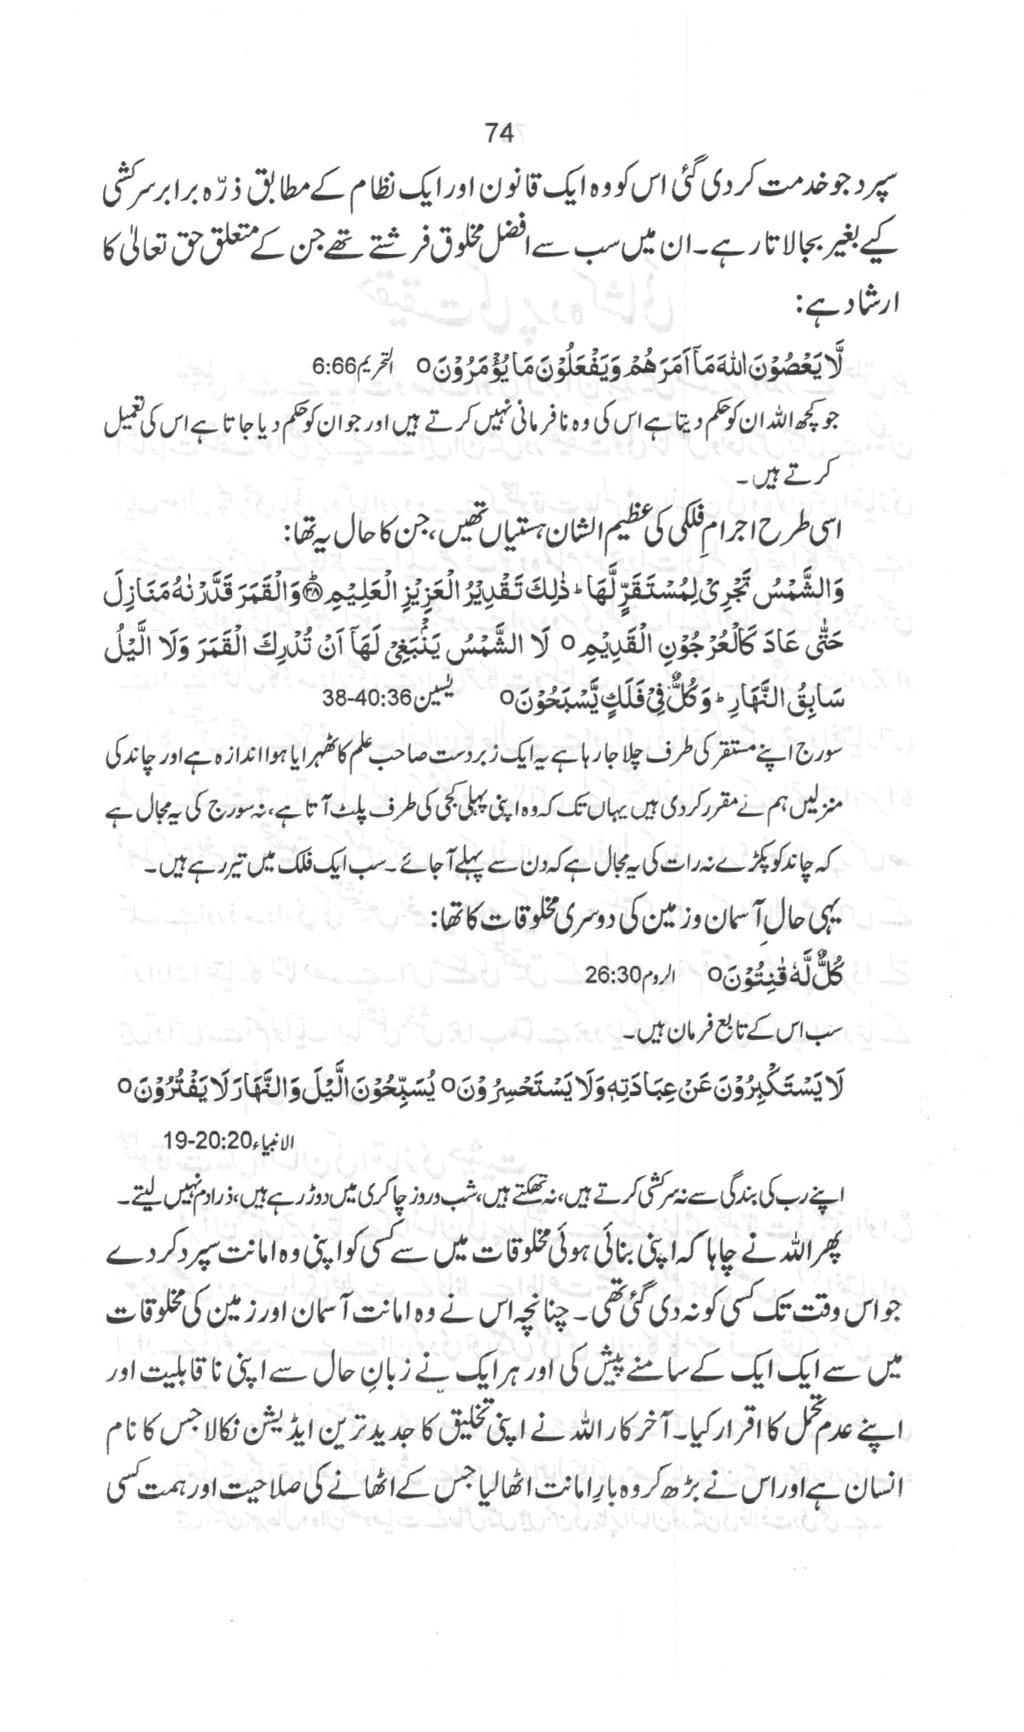 74
سپرد جو خدمت کر دی گئی اس کو وہ ایک قانون اور ایک نظام کے مطابق ذرّہ برابر سرکشی
کیے بغیر بجالاتا رہے۔ ان میں سب سے افضل مخلوق فرشتے تھے جن کے متعلق حق تعالیٰ کا
ارشاد ہے:
لَّا يَعْصُوْنَ اللّٰهَ مَآ اَمَرَهُمْ وَيَفْعَلُوْنَ مَا يُؤْمَرُوْنَ○ التحریم 6:66
جو کچھ اللہ ان کو حکم دیتا ہے اس کی وہ نافرمانی نہیں کرتے ہیں اور جو ان کو حکم دیا جاتا ہے اس کی تعمیل
کرتے ہیں۔
اسی طرح اجرامِ فلکی کی عظیم الشان ہستیاں تھیں، جن کا حال یہ تھا:
وَالشَّمْسُ تَجْرِيْ لِمُسْتَقَرٍّ لَّهَا ۭ ذٰلِكَ تَقْدِيْرُ الْعَزِيْزِ الْعَلِيْمِ ۝۳۸ وَالْقَمَرَ قَدَّرْنٰهُ مَنَازِلَ
حَتّٰى عَادَ كَالْعُرْجُوْنِ الْقَدِيْمِ ○ لَا الشَّمْسُ يَنْۢبَغِيْ لَهَآ اَنْ تُدْرِكَ الْقَمَرَ وَلَا الَّيْلُ
سَابِقُ النَّهَارِ ۭ وَكُلٌّ فِيْ فَلَكٍ يَّسْبَحُوْنَ○ یٰسین 38-40:36
سورج اپنے مستقر کی طرف چلا جارہا ہے یہ ایک زبردست صاحب علم کا ٹھہرایا ہوا اندازہ ہے اور چاند کی
منزلیں ہم نے مقرر کردی ہیں یہاں تک کہ وہ اپنی پہلی کجی کی طرف پلٹ آتا ہے، نہ سورج کی یہ مجال ہے
کہ چاند کو پکڑے نہ رات کی یہ مجال ہے کہ دن سے پہلے آجائے۔ سب ایک فلک میں تیر رہے ہیں۔
یہی حالِ آسمان و زمین کی دوسری مخلوقات کا تھا:
كُلٌّ لَّهٗ قٰنِتُوْنَ○ الروم 26:30
سب اس کے تابع فرمان ہیں۔
لَا يَسْتَكْبِرُوْنَ عَنْ عِبَادَتِهٖ وَلَا يَسْتَحْسِرُوْنَ○ يُسَبِّحُوْنَ الَّيْلَ وَالنَّهَارَ لَا يَفْتُرُوْنَ○
الانبیاء 19-20:20
اپنے رب کی بندگی سے نہ سرکشی کرتے ہیں، نہ تھکتے ہیں، شب و روز چاکری میں دوڑ رہے ہیں، ذرا دم نہیں لیتے۔
پھر اللہ نے چاہا کہ اپنی بنائی ہوئی مخلوقات میں سے کسی کو اپنی وہ امانت سپرد کر دے
جو اس وقت تک کسی کو نہ دی گئی تھی۔ چنانچہ اس نے وہ امانت آسمان اور زمین کی مخلوقات
میں سے ایک ایک کے سامنے پیش کی اور ہر ایک نے زبانِ حال سے اپنی ناقابلیت اور
اپنے عدم تحمل کا اقرار کیا۔ آخر کار اللہ نے اپنی تخلیق کا جدید ترین ایڈیشن نکالا جس کا نام
انسان ہے اور اس نے بڑھ کر وہ بارِ امانت اٹھالیا جس کے اٹھانے کی صلاحیت اور ہمت کسی